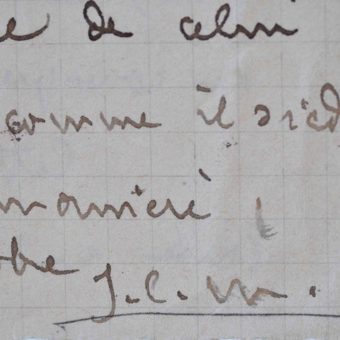 de celui
comme il sied
manière,
J. C. M.